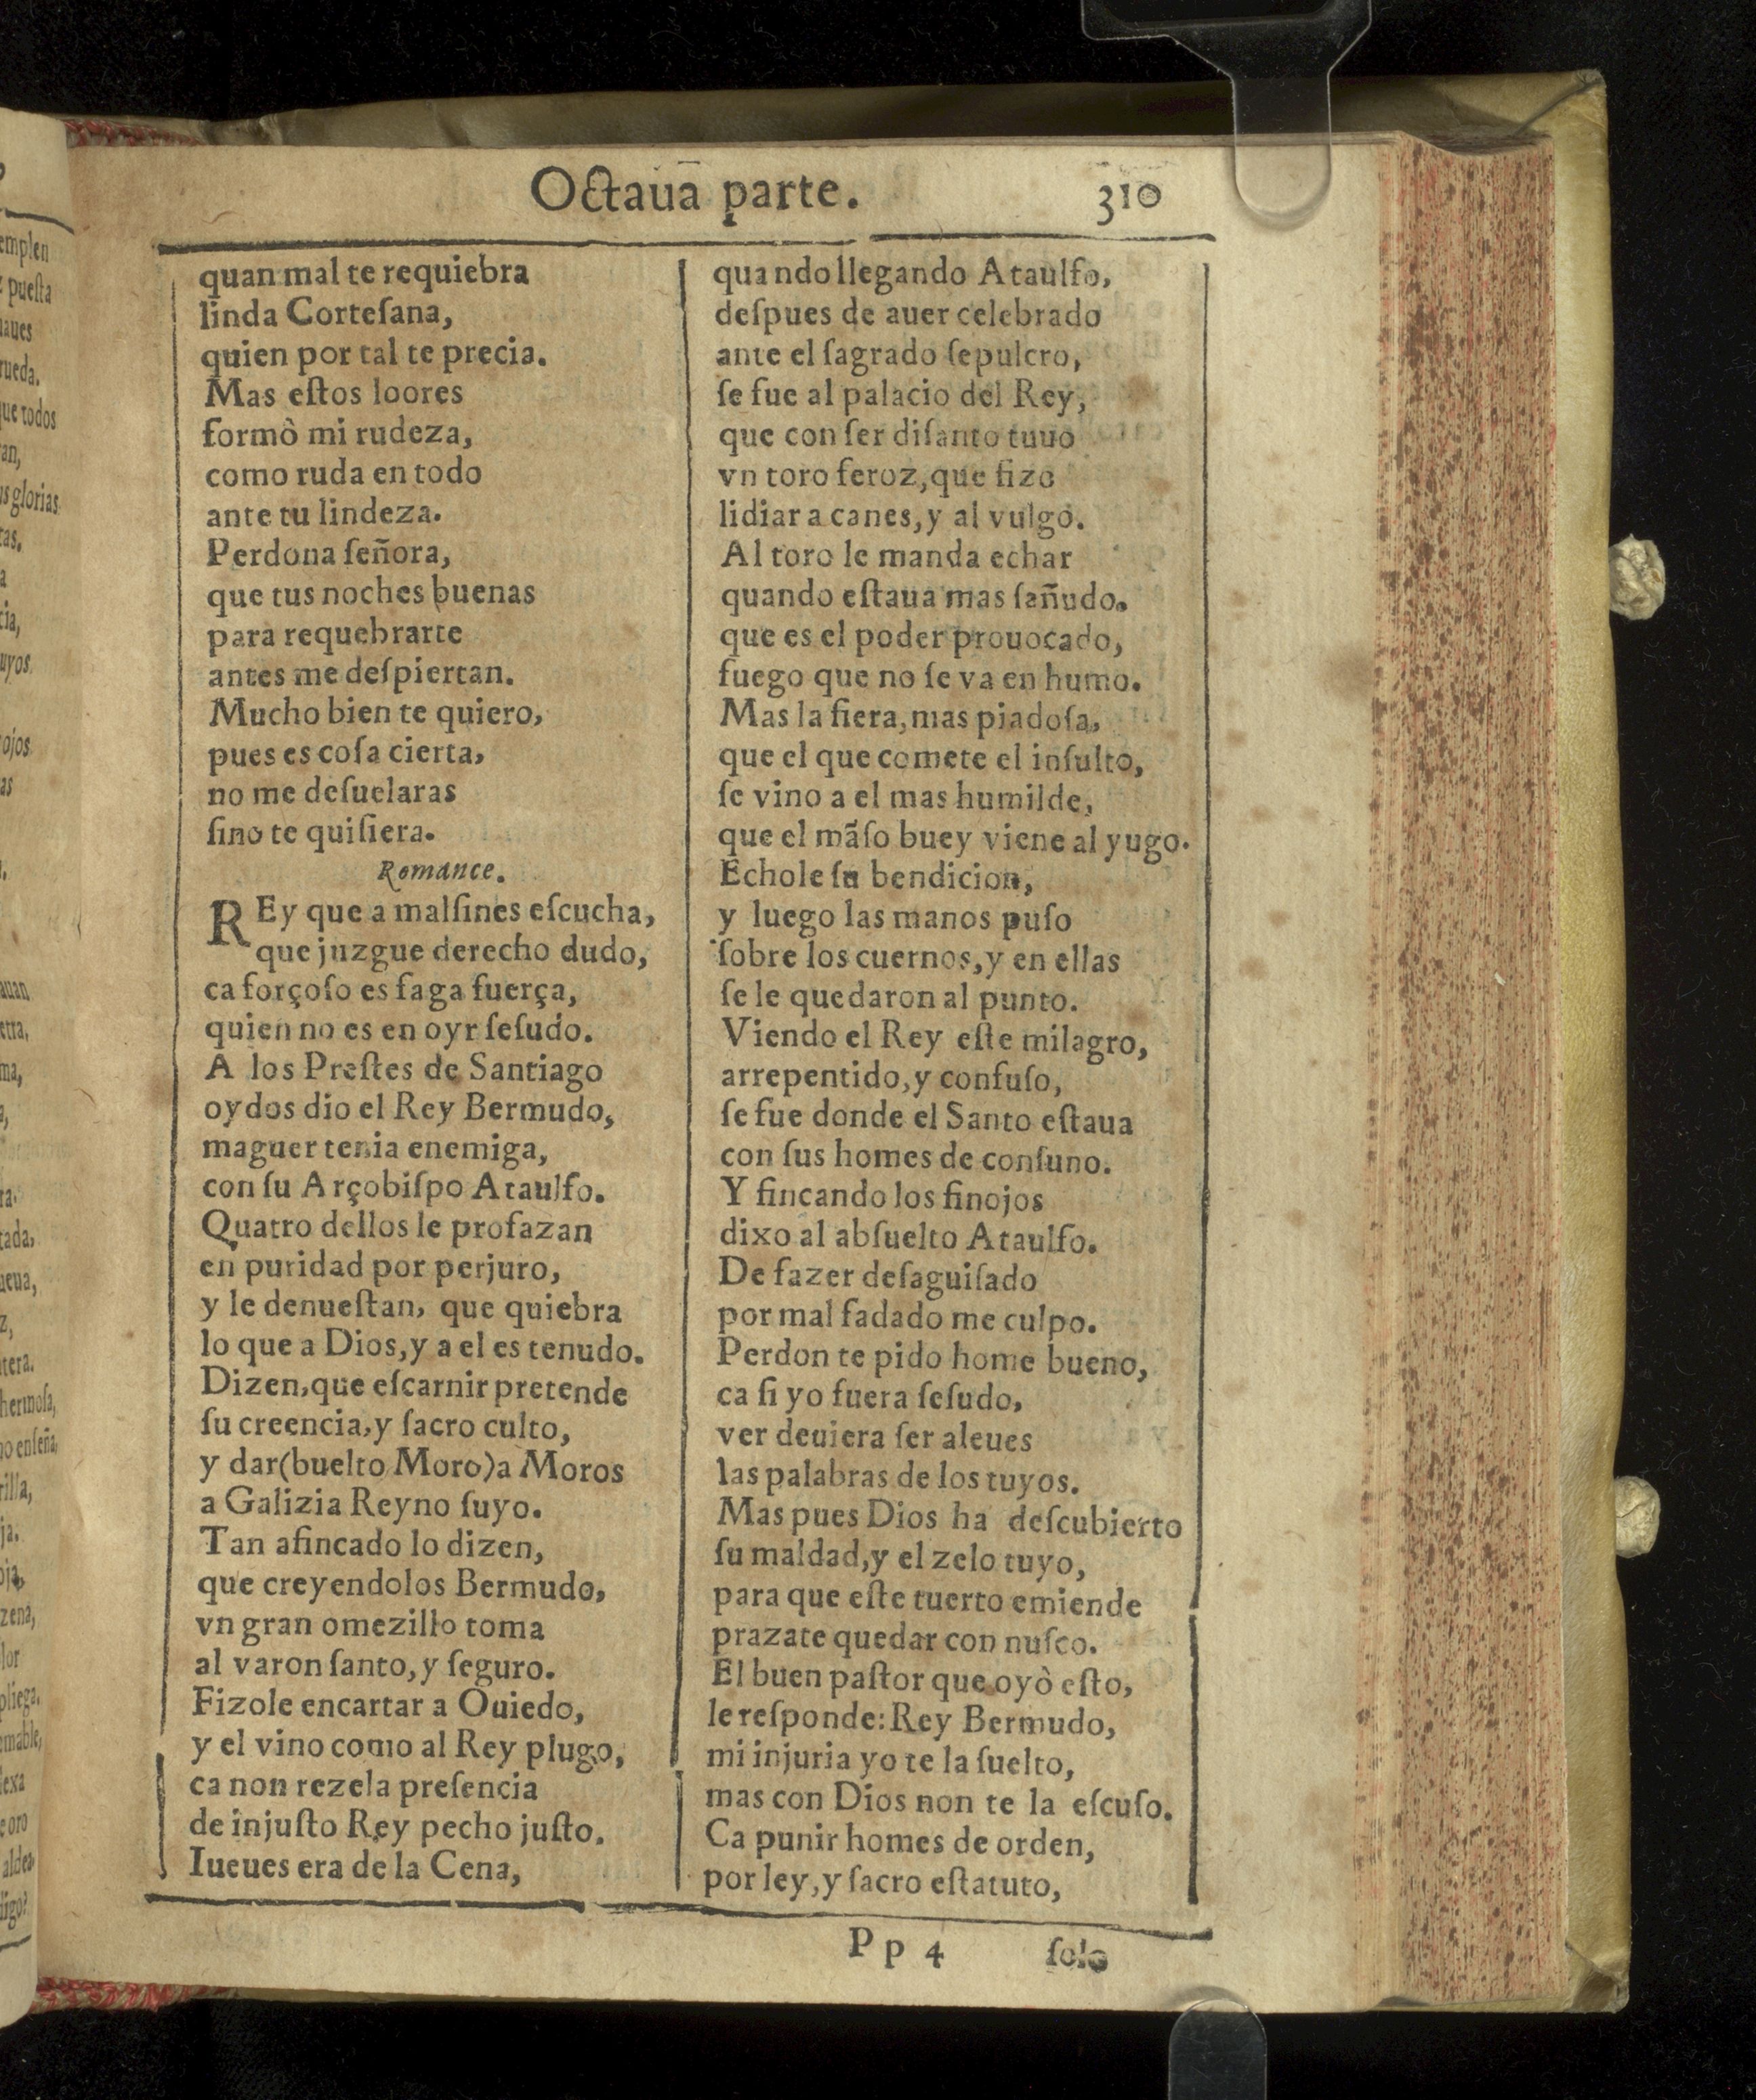 Octaua parte.
310
quan mal te requiebra
linda Corteſana,
quien por tal te precia.
Mas eſtos loores
formò mi rudeza,
como ruda en todo
ante tu lindeza.
Perdona ſeñora,
que tus noches buenas
para requebrarte
antes me deſpiertan.
Mucho bien te quiero,
pues es coſa cierta,
no me deſuelaras
ſino te quiſiera.
Romance.
REy que a malſines eſcucha,
que juzgue derecho dudo,
ca forçoſo es faga fuerça,
quien no es en oyr ſeſudo.
A los Preſtes de Santiago
oydos dio el Rey Bermudo,
maguer tenia enemiga,
con ſu Arçobiſpo Ataulfo.
Quatro dellos le profazan
en puridad por perjuro,
y le denueſtan, que quiebra
lo que a Dios, y a el es tenudo.
Dizen, que eſcarnir pretende
ſu creencia, y ſacro culto,
y dar (buelto Moro) a Moros
a Galizia Reyno ſuyo.
Tan afincado lo dizen,
que creyendolos Bermudo,
vn gran omezillo toma
al varon ſanto, y ſeguro.
Fizole encartar a Ouiedo,
y el vino como al Rey plugo,
ca non rezela preſencia
de injuſto Rey pecho juſto.
Iueues era de la Cena,
quando llegando Ataulfo,
deſpues de auer celebrado
ante el ſagrado ſepulcro,
ſe fue al palacio del Rey,
que con ſer diſanto tuuo
vn toro feroz, que fizo
lidiar a canes, y al vulgo.
Al toro le manda echar
quando eſtaua mas ſañudo.
que es el poder prouocado,
fuego que no ſe va en humo.
Mas la fiera, mas piadoſa,
que el que comete el inſulto,
ſe vino a el mas humilde,
que el mãſo buey viene al yugo.
Echole ſu bendicion,
y luego las manos puſo
ſobre los cuernos, y en ellas
ſe le quedaron al punto.
Viendo el Rey eſte milagro,
arrepentido, y confuſo,
ſe fue donde el Santo eſtaua
con ſus homes de conſuno.
Y fincando los finojos
dixo al abſuelto Ataulfo.
De fazer deſaguiſado
por mal fadado me culpo.
Perdon te pido home bueno,
ca ſi yo fuera ſeſudo,
ver deuiera ſer aleues
las palabras de los tuyos.
Mas pues Dios ha deſcubierto
ſu maldad, y el zelo tuyo,
para que eſte tuerto emiende
prazate quedar con nuſco.
El buen paſtor que oyò eſto,
le reſponde: Rey Bermudo,
mi injuria yo te la ſuelto,
mas con Dios non te la eſcuſo.
Ca punir homes de orden,
por ley, y ſacro eſtatuto,
Pp 4
ſolo